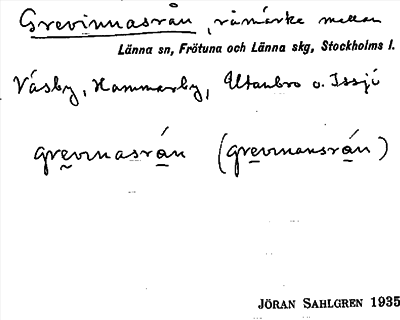 Grevinnasrån, råmärke mellan
Länna sn, Frötuna och Länna skg, Stockholms l.
Väsby, Hammarby, Utanbro o. Issjö
grevınasrán (grevınansrán)
JÖRAN SAHLGREN 1935